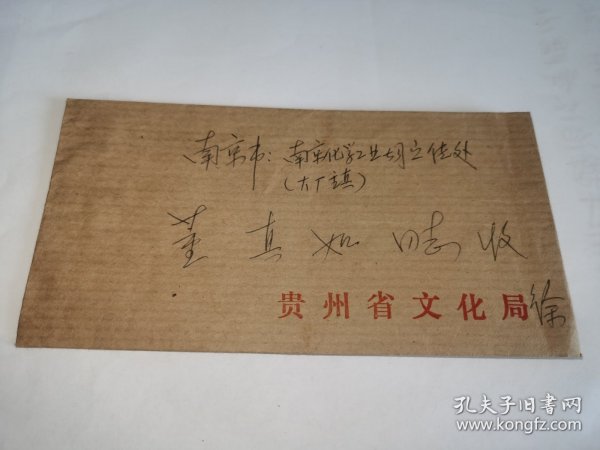 南京市：南京化学工业公司宣传处
（大厂镇）
董真如同志收
贵州省文化局徐
孔夫子旧书网
www.kongfz.com